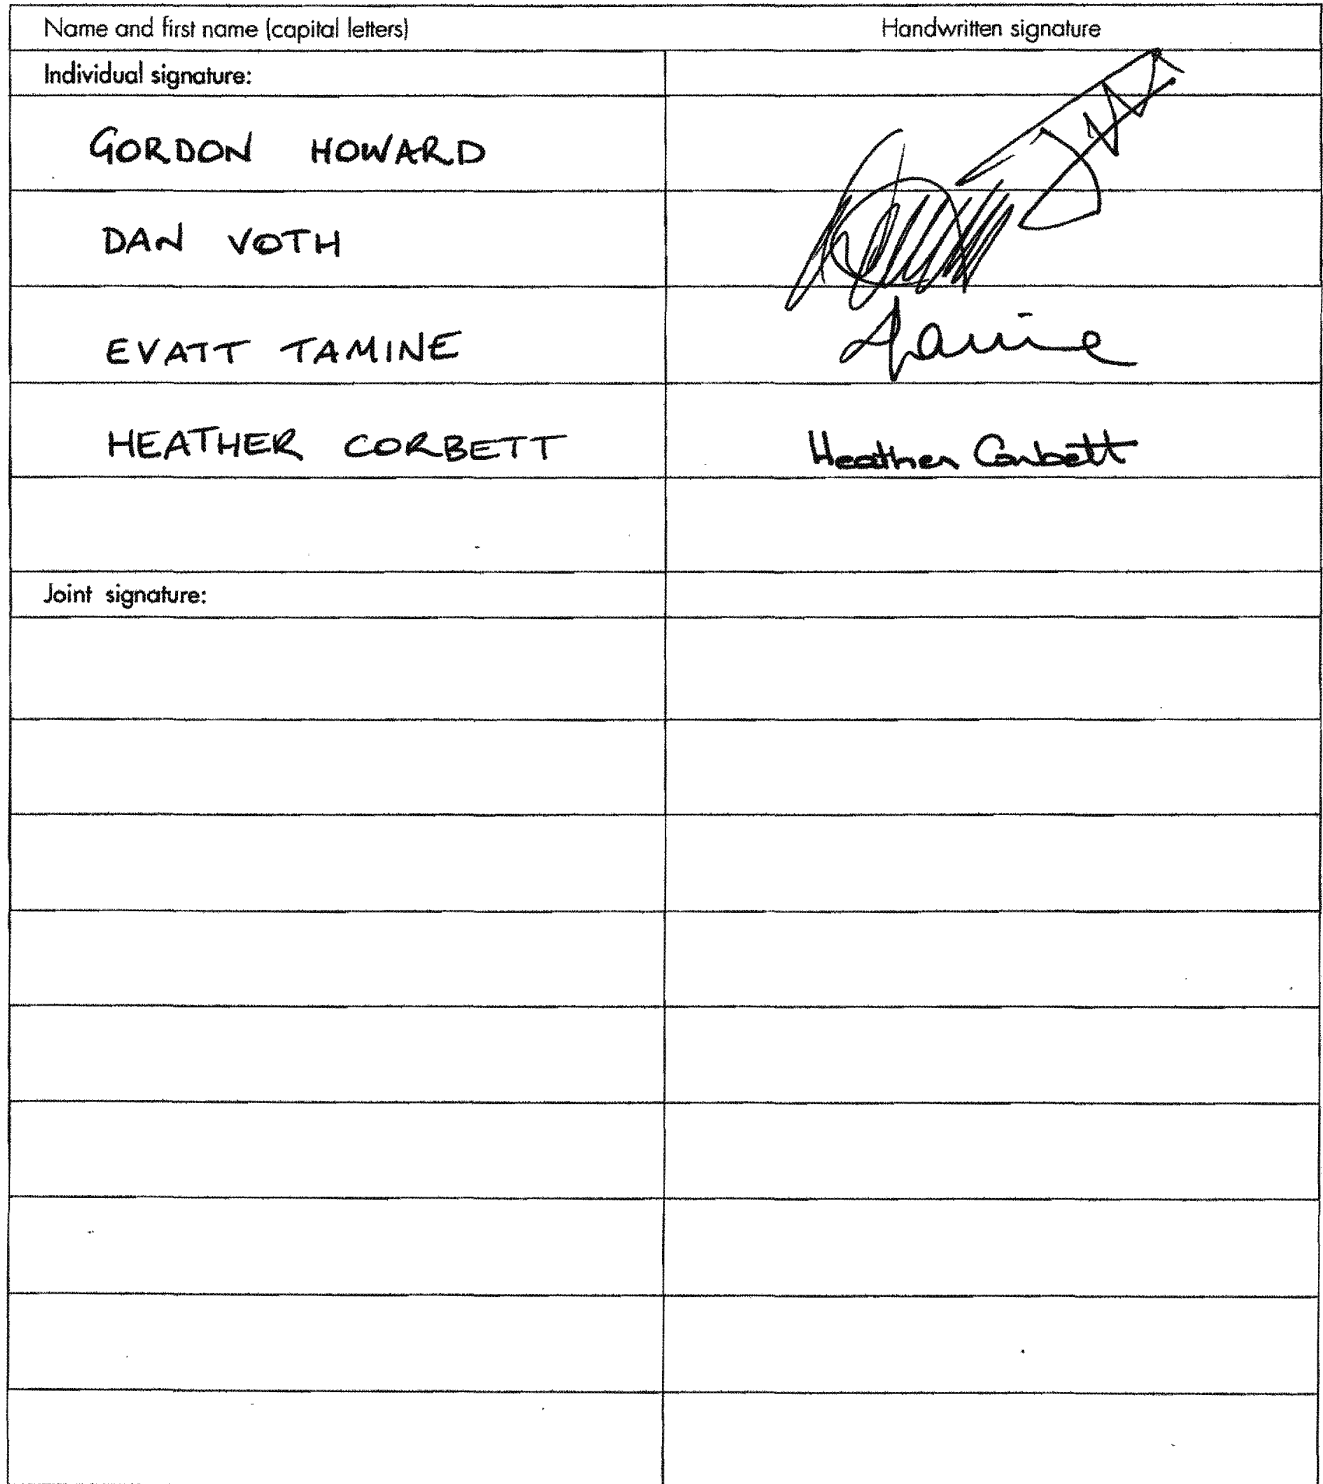 Name and first name (capital letters) Handwritten signature
Individual signature:
GORDON HOWARD
DAN VOTH
EVATT TAMINE Tamine
HEATHER CORBETT Heather Corbett
Joint signature: